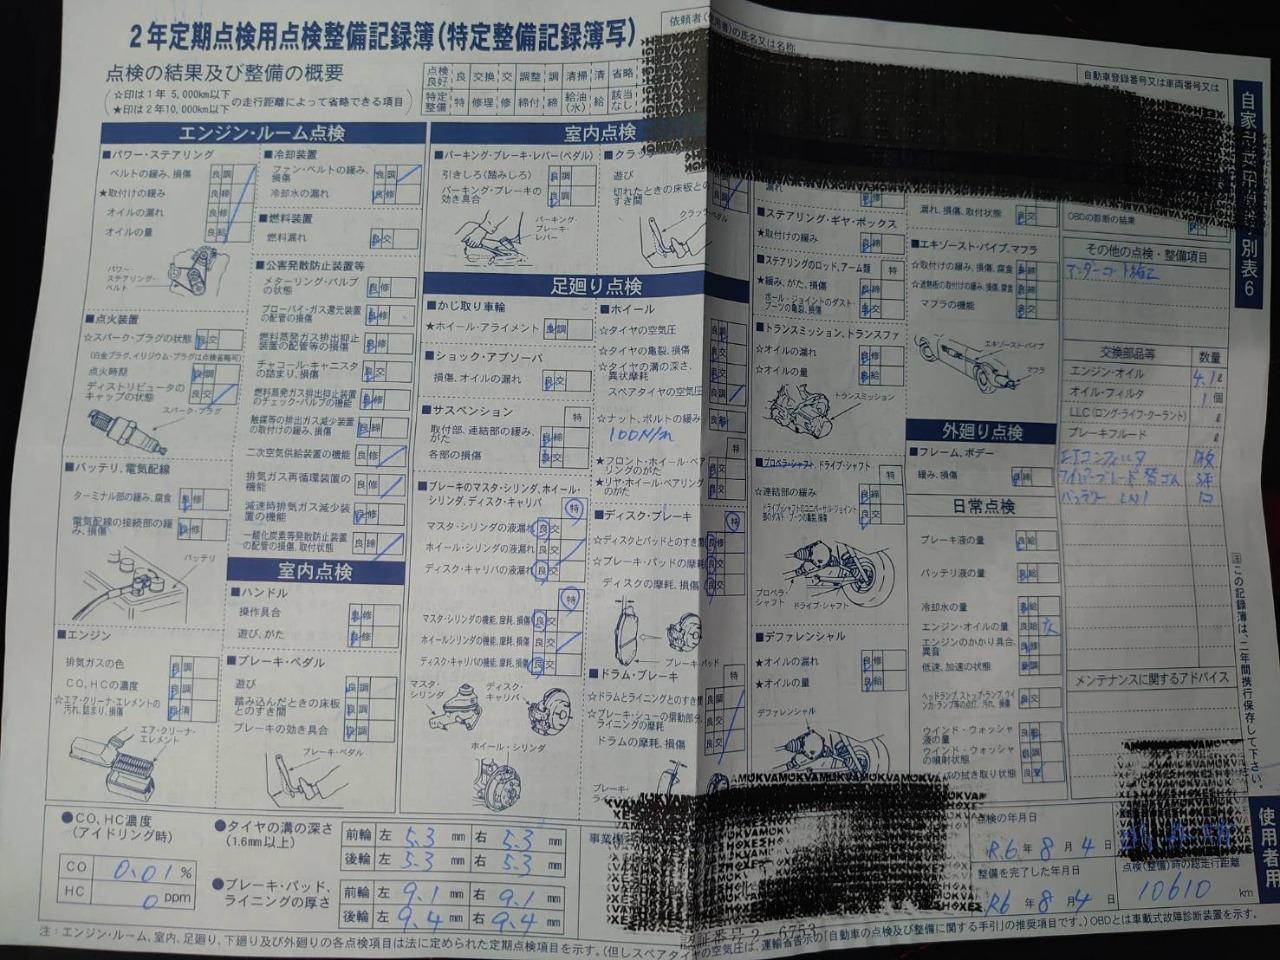 2年定期点検用点検整備記録簿(特定整備記録簿写)
点検の結果及び整備の概要
☆印は1年 5,000km以下
★印は2年10,000km以下
の走行距離によって省略できる項目
点検良好 良 交換 交 調整 調 清掃 清 省略
特定整備 特 修理 修 締付 締 給油(水) 給 該当なし
自動車登録番号又は車両番号又は
別表6
エンジン・ルーム点検
■パワー・ステアリング
ベルトの緩み、損傷
★取付けの緩み
オイルの漏れ
オイルの量
パワー・ステアリング・ベルト
■点火装置
☆スパーク・プラグの状態
(白金プラグ、イリジウム・プラグは点検省略可)
点火時期
ディストリビュータのキャップの状態
スパーク・プラグ
■バッテリ、電気配線
ターミナル部の緩み、腐食
電気配線の接続部の緩み、損傷
バッテリ
■エンジン
排気ガスの色
CO、HCの濃度
☆エア・クリーナ・エレメントの汚れ、詰まり、損傷
エア・クリーナ・エレメント
■冷却装置
ファン・ベルトの緩み、損傷
冷却水の漏れ
■燃料装置
燃料漏れ
■公害発散防止装置等
メターリング・バルブの状態
ブローバイ・ガス還元装置の配管の損傷
燃料蒸発ガス排出抑止装置の配管等の損傷
チャコール・キャニスタの詰まり、損傷
燃料蒸発ガス排出抑止装置のチェック・バルブの機能
触媒等の排出ガス減少装置の取付けの緩み、損傷
二次空気供給装置の機能
排気ガス再循環装置の機能
減速時排気ガス減少装置の機能
一酸化炭素等発散防止装置の配管の損傷、取付状態
室内点検
■ハンドル
操作具合
遊び、がた
■ブレーキ・ペダル
遊び
踏み込んだときの床板とのすき間
ブレーキの効き具合
ブレーキ・ペダル
室内点検
■パーキング・ブレーキ・レバー(ペダル)
引きしろ(踏みしろ)
パーキング・ブレーキの効き具合
パーキング・ブレーキ・レバー
遊び
切れたときの床板とのすき間
足廻り点検
■かじ取り車輪
★ホイール・アライメント
■ショック・アブソーバ
損傷、オイルの漏れ
■サスペンション
取付部、連結部の緩み、がた
各部の損傷
■ブレーキのマスタ・シリンダ、ホイール・シリンダ、ディスク・キャリパ
マスタ・シリンダの液漏れ
ホイール・シリンダの液漏れ
ディスク・キャリパの液漏れ
マスタ・シリンダの機能、摩耗、損傷
ホイールシリンダの機能、摩耗、損傷
ディスク・キャリパの機能、摩耗、損傷
マスタ・シリンダ
ディスク・キャリパ
ホイール・シリンダ
■ホイール
☆タイヤの空気圧
☆タイヤの亀裂、損傷
☆タイヤの溝の深さ、異状摩耗
スペアタイヤの空気圧
☆ナット、ボルトの緩み
100N/m
★フロント・ホイール・ベアリングのがた
★リヤ・ホイール・ベアリングのがた
■ディスク・ブレーキ
☆ディスクとパッドとのすき間
☆ブレーキ・パッドの摩耗
ディスクの摩耗、損傷
ブレーキ・パッド
■ドラム・ブレーキ
☆ドラムとライニングとのすき間
ドラムの摩耗、損傷
■ステアリング・ギヤ・ボックス
★取付けの緩み
■ステアリングのロッド、アーム類
★緩み、がた、損傷
ボール・ジョイントのダスト・ブーツの亀裂、損傷
■トランスミッション、トランスファ
☆オイルの漏れ
☆オイルの量
トランスミッション
■プロペラ・シャフト、ドライブ・シャフト
★連結部の緩み
ドライブ・シャフトのユニバーサル・ジョイント部のダスト・ブーツの亀裂、損傷
プロペラ・シャフト
ドライブ・シャフト
■デファレンシャル
★オイルの漏れ
★オイルの量
デファレンシャル
漏れ、損傷、取付状態
■エキゾースト・パイプ、マフラ
☆取付けの緩み、損傷、腐食
☆遮熱板の取付けの緩み、損傷、腐食
マフラの機能
エキゾースト・パイプ
マフラ
外廻り点検
■フレーム、ボデー
緩み、損傷
日常点検
ブレーキ液の量
バッテリ液の量
冷却水の量
エンジン・オイルの量
エンジンのかかり具合、異音
低速、加速の状態
ヘッドランプ、ストップ・ランプ、ウインカ・ランプ等の点灯、汚れ、損傷
ウインド・ウォッシャ液の量
ウインド・ウォッシャの噴射状態
の拭き取り状態
OBDの診断の結果
その他の点検・整備項目
アンダーコート施工
交換部品等 数量
エンジン・オイル 4.1ℓ
オイル・フィルタ 1個
LLC(ロング・ライフ・クーラント) ℓ
ブレーキフルード ℓ
エアコンフィルタ
ワイパーブレード替ゴム
バッテリー LN1
メンテナンスに関するアドバイス
注 この記録簿は、二年間携行保存して下さい。
使用者用
●CO、HC濃度
(アイドリング時)
CO 0.01 %
HC 0 ppm
●タイヤの溝の深さ
(1.6mm以上)
前輪 左 5.3 mm 右 5.3
後輪 左 5.3 mm 右 5.3
●ブレーキ・パッド、ライニングの厚さ
前輪 左 9.1 mm 右 9.1
後輪 左 9.4 mm 右 9.4
点検の年月日
R6年8月4日
整備を完了した年月日
R6年8月4日
点検(整備)時の総走行距離
10610 km
認証番号 2-6753
注:エンジン・ルーム、室内、足廻り、下廻り及び外廻りの各点検項目は法に定められた定期点検項目を示す。(但しスペアタイヤの空気圧は、運輸省告示の「自動車の点検及び整備に関する手引」の推奨項目です。)OBDとは車載式故障診断装置を示す。